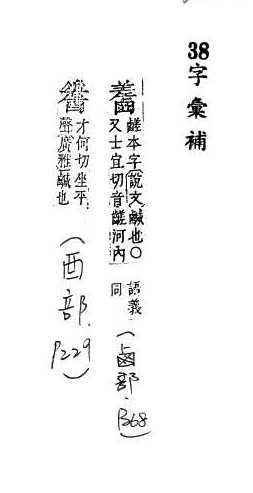 38字彙補
鹺本字說文鹹也〇
又士宜切音齹河內
語義
同
(鹵部.
P368)
才何切坐平
聲廣雅鹹也
(酉部.
P229)